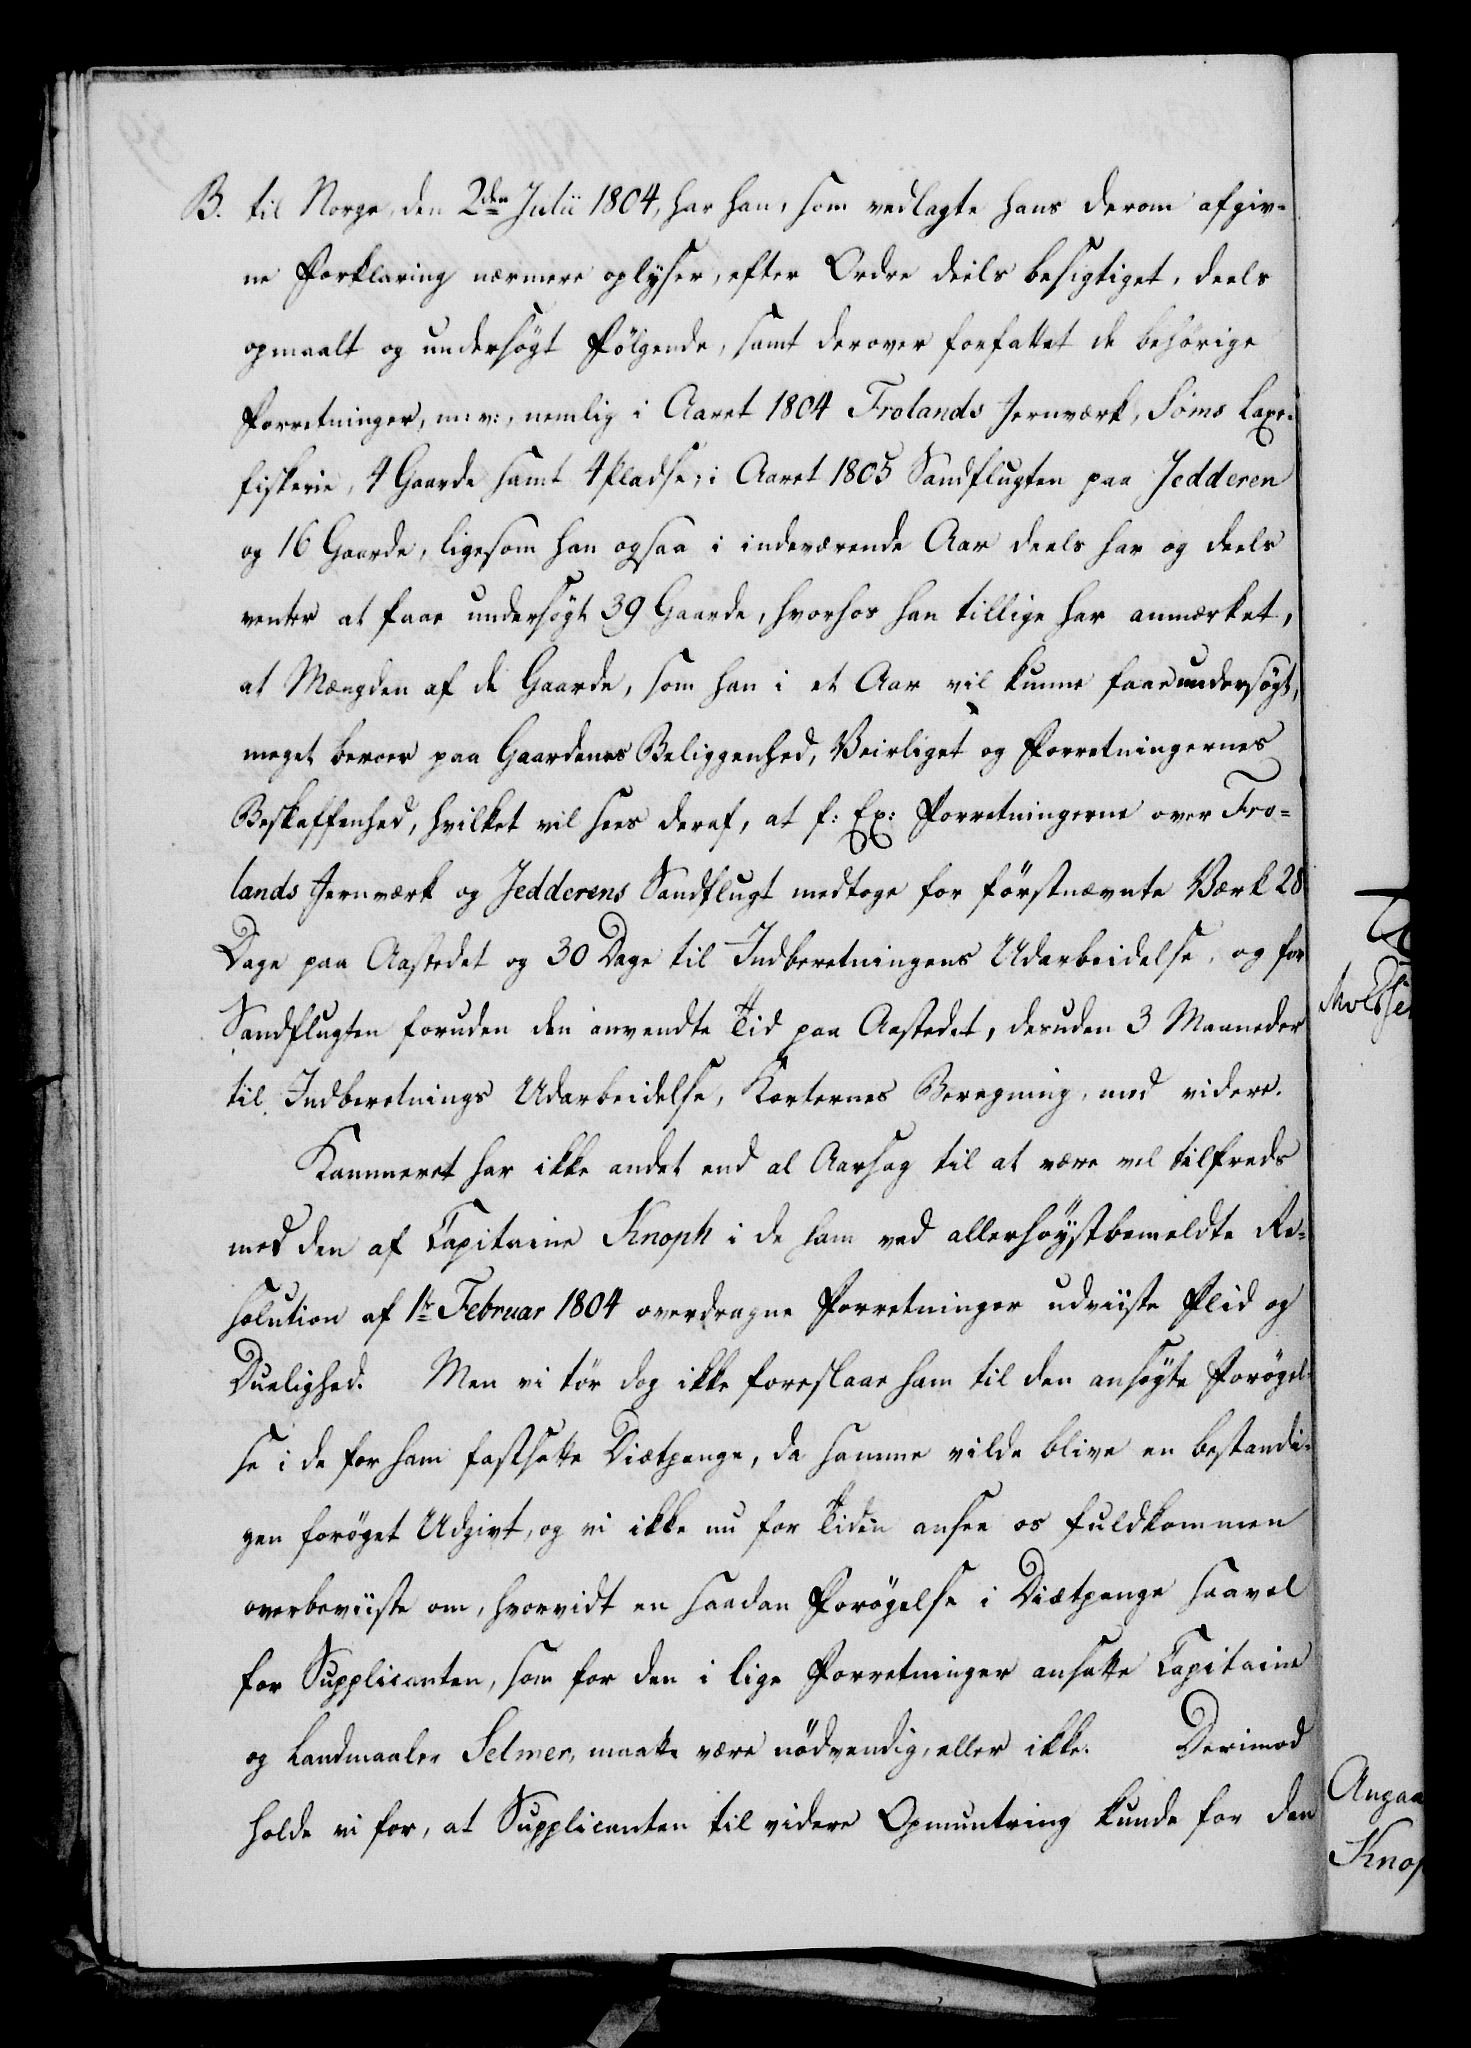 B. til Norge, den 2den Julii 1804, har han, som vedlagte hans derom afgiv-
ne Forklaring nærmere oplyser, efter Ordre deels besigtiget, deels
opmaalt og undersøgt følgende, samt derover forfattet de behørige
Forretninger, m: v:, nemlig i Aaret 1804 Frolands Jernværk, Söms Laxe-
fiskerie, 4 Gaarde samt 4 Pladse; i Aaret 1805 Sandflugten paa Jedderen
og 16 Gaarde, ligesom han ogsaa i indeværende Aar deels har og deels
venter at faae undersøgt 39 Gaarde, hvorhos han tillige har anmærket,
at Mængden af de Gaarde, som han i et Aar vil kunne faae undersøgt,
meget beroer paa Gaardenes Beliggenhed, Veirliget og Forretningernes
Beskaffenhed, hvilket vil sees deraf, at f: Ex: Forretningerne over Fro-
lands Jernværk og Jedderens Sandflugt medtoge for förstnævnte Værk 28
Dage paa Aastedet og 30 Dage til Indberetningens Udarbeidelse, og for
Sandflugten foruden den anvendte Tid paa Aastedet, desuden 3 Maaneder
til Indberetnings Udarbeidelse, Karternes Beregning, med videre.
Kammeret har ikke andet end al Aarsag til at være vel tilfreds
med den af Capitaine Knoph i de ham ved allerhøystbemeldte Re-
solution af 1te Februar 1804 overdragne Forretninger udviiste Flid og
Duelighed. Men vi tör dog ikke foreslaae ham til den ansøgte Forøgel-
se i de for ham fastsatte Diætpenge, da samme vilde blive en bestandi-
gen forøget Udgivt, og vi ikke nu for Tiden ansee os fuldkommen
overbeviiste om, hvorvidt en saadan Forøgelse i Diætpenge saavel
for Supplicanten, som for den i lige Forretninger ansatte Capitaine
og Landmaaler Selmer, maatte være nødvendig, eller ikke. Derimod
holde vi for, at Supplicanten til videre Opmuntring kunde for den
Angaa
Knop